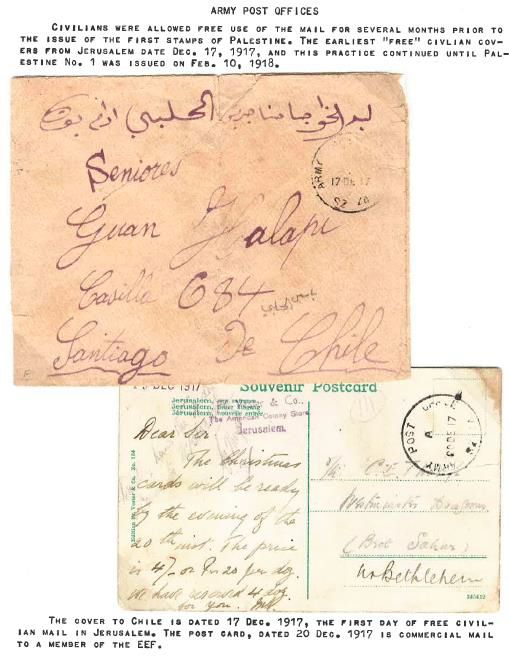 ARMY POST OFFICES
CIVILIANS WERE ALLOWED FREE USE OF THE MAIL FOR SEVERAL MONTHS PRIOR TO
THE ISSUE OF THE FIRST STAMPS OF PALESTINE. THE EARLIEST "FREE" CIVLIAN COV-
ERS FROM JERUSALEM DATE DEC. 17, 1917, AND THIS PRACTICE CONTINUED UNTIL PAL-
ESTINE NO. 1 WAS ISSUED ON FEB. 10, 1918.
الحلبي
ARMY
17 DE 17
SZ
Seniores
Guan Halapi
Casilla 684
Santiago De Chile
DEC 1917
Souvenir Postcard
& Co.
The American Colony Store
Jerusalem.
ARMY POST OFFICE
Dear Sir
The Christmas
cards will be ready
by the evening of the
20th inst. The price
is 4/- or P. 20 per doz.
We have reserved 4 doz.
for you.
(Beit Sahur)
nr Bethlehem
THE COVER TO CHILE IS DATED 17 DEC. 1917, THE FIRST DAY OF FREE CIVIL-
IAN MAIL IN JERUSALEM. THE POST CARD, DATED 20 DEC. 1917 IS COMMERCIAL MAIL
TO A MEMBER OF THE EEF.